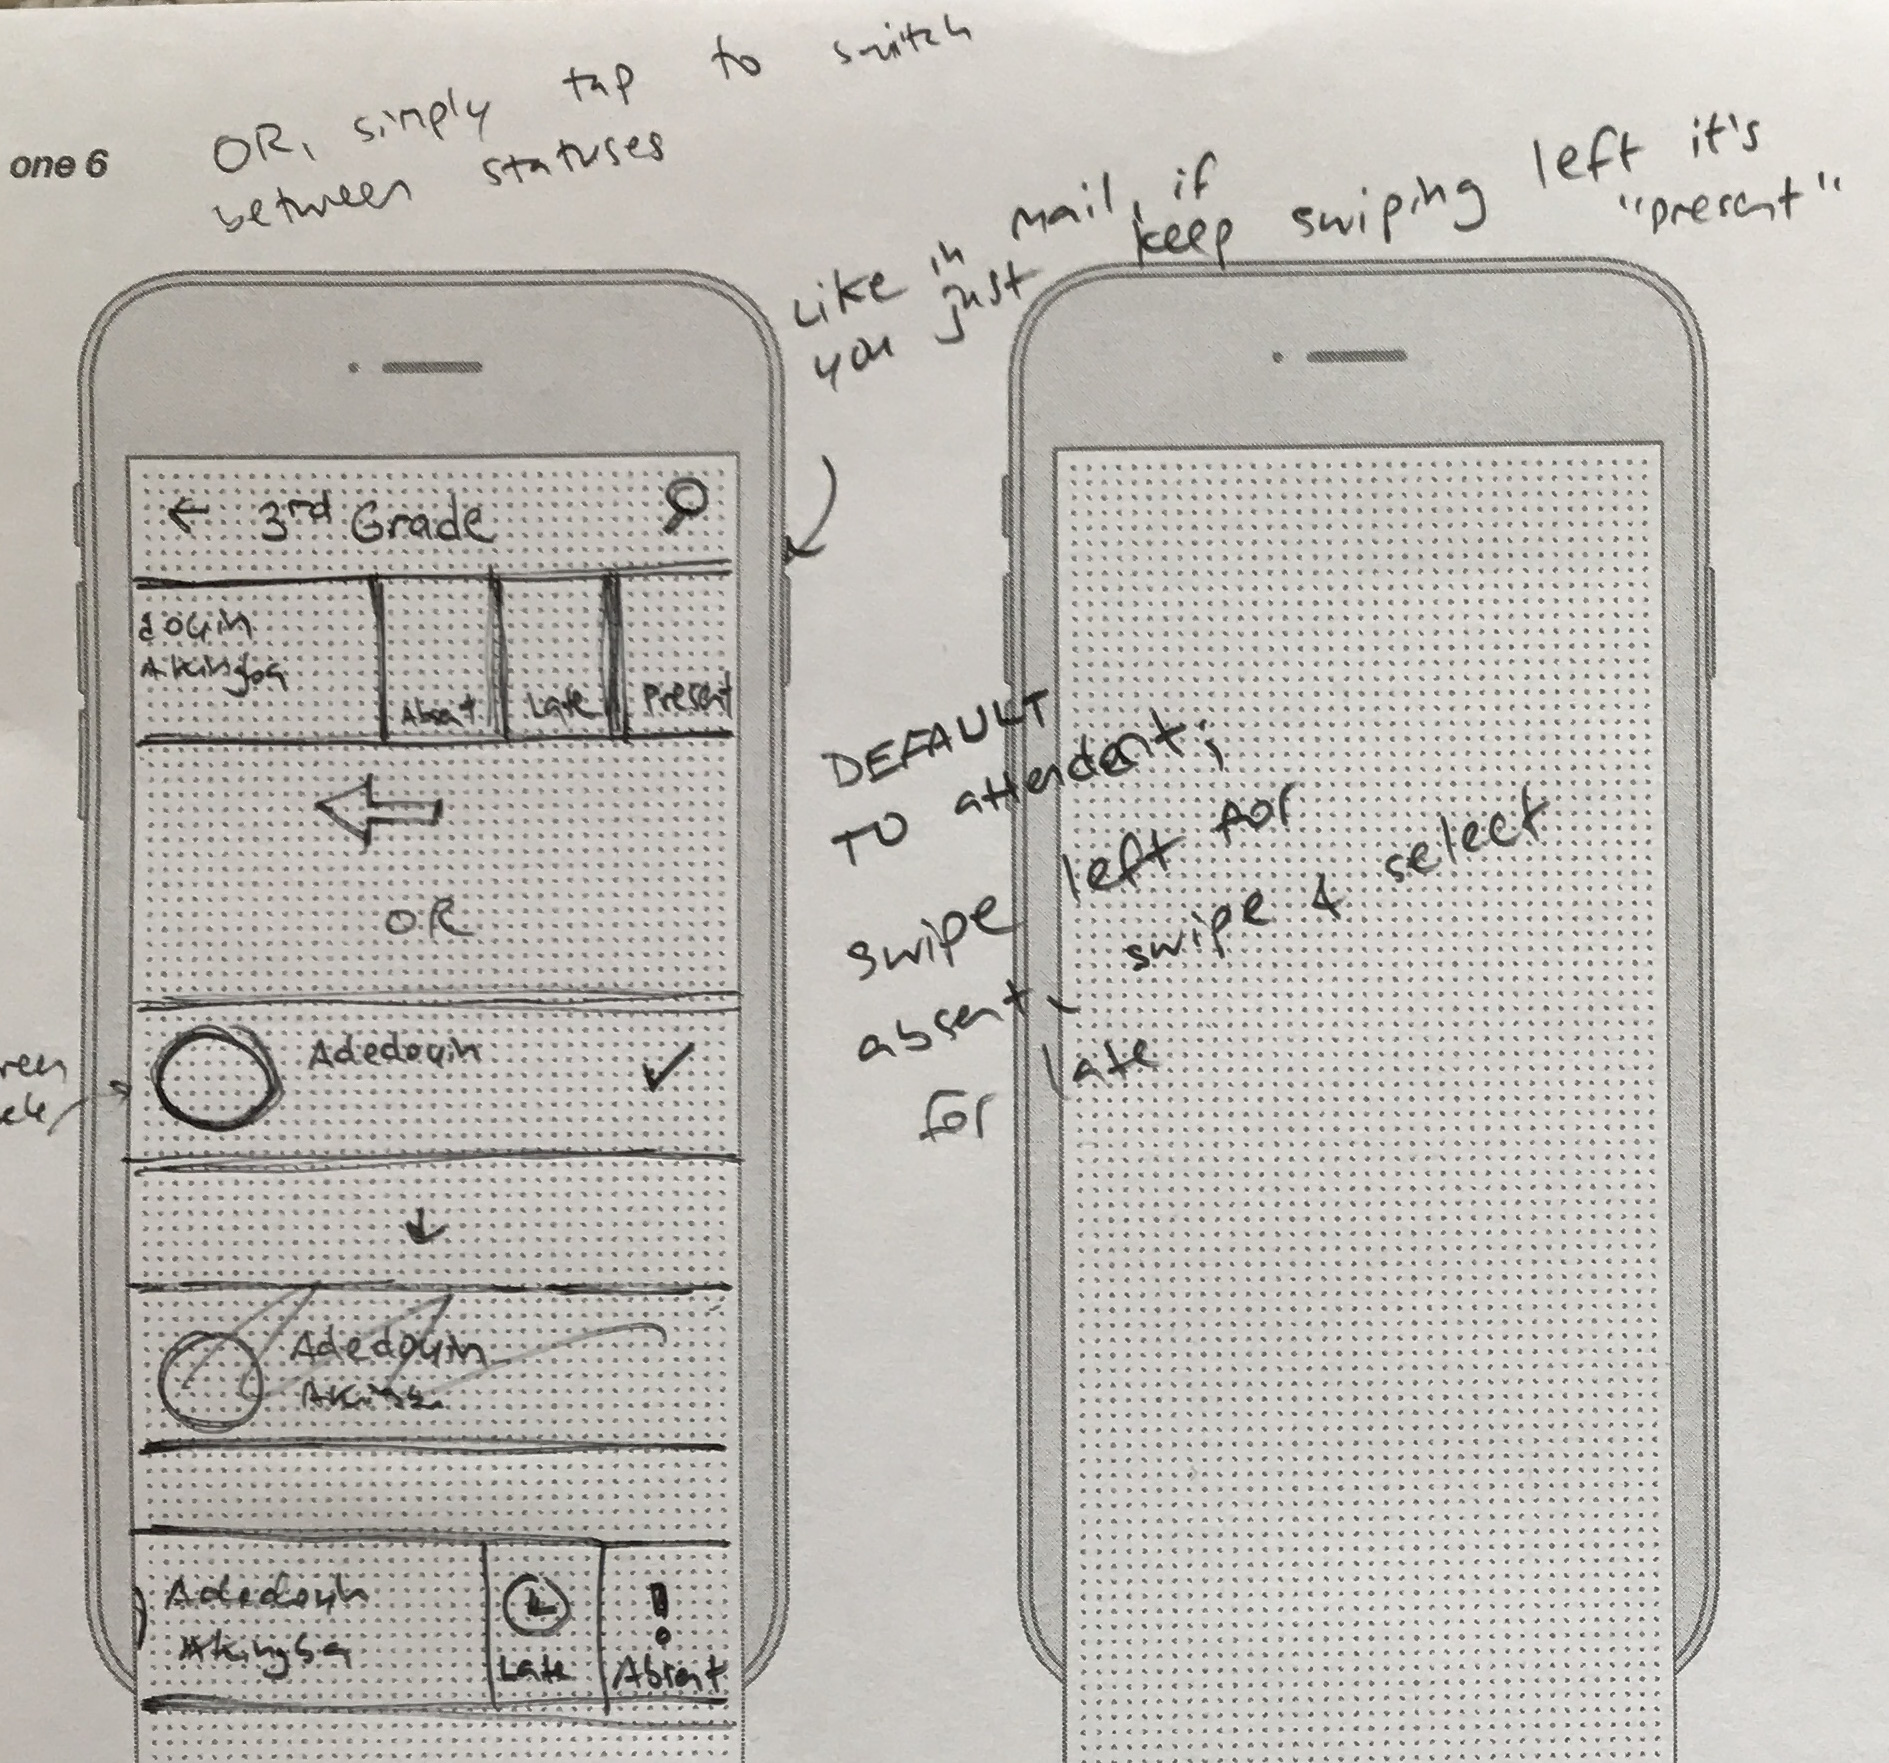 one 6
OR, simply tap to switch
between statuses
Like in mail, if
you just keep swiping left it's
"present"
← 3rd Grade
Akingba
Absent
Late
Present
OR
DEFAULT
TO attendent;
swipe left for
absent, swipe & select
for late
Adedoyin
Adedoyin
Adedoyin
Akingba
Late
Absent